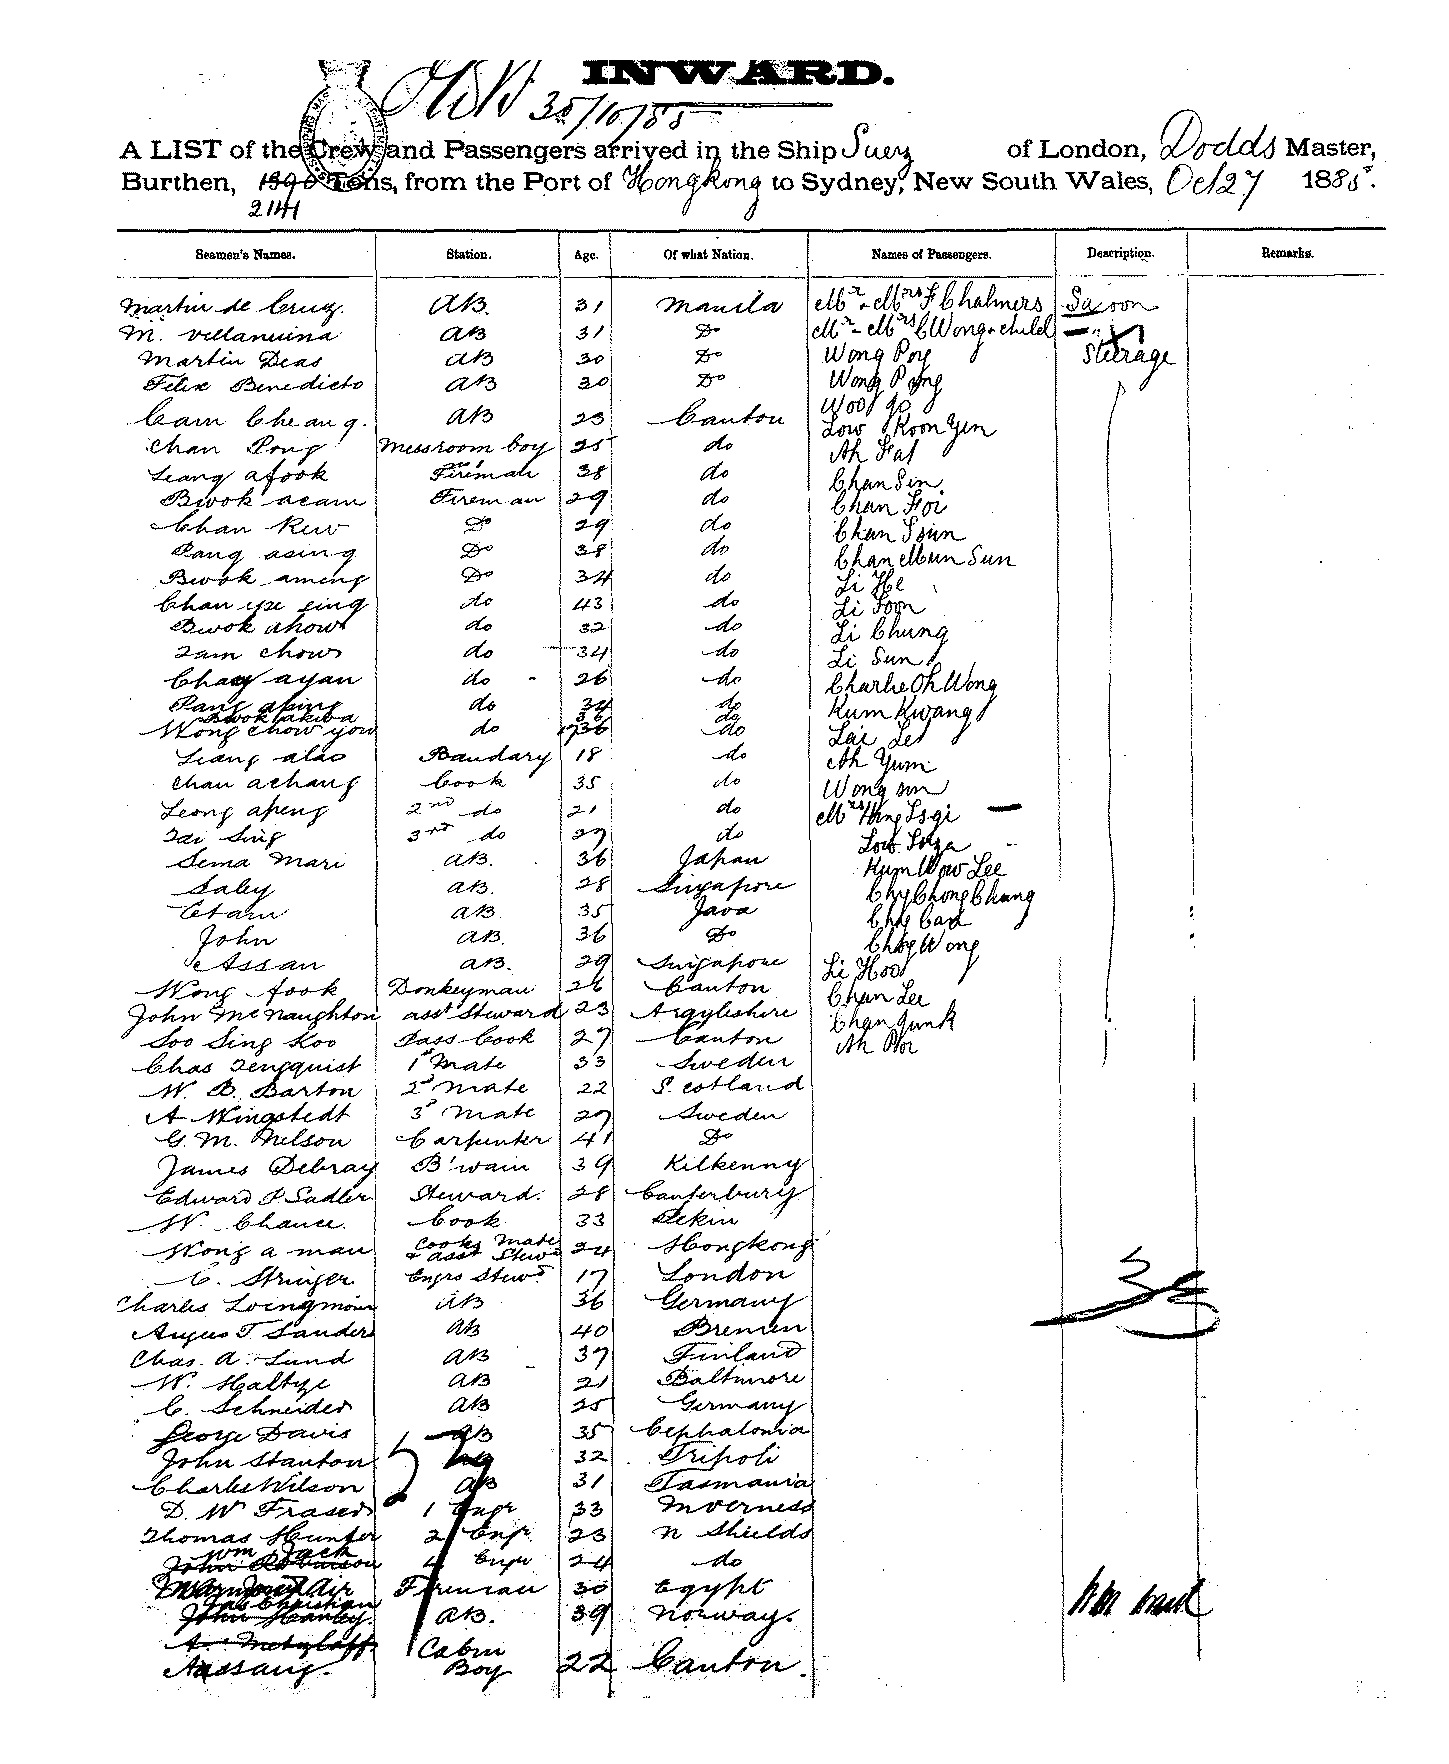 INWARD.
30/10/85
A LIST of the Crew and Passengers arrived in the Ship Suez of London, Dodds Master,
Burthen, 1390 Tons, from the Port of Hongkong to Sydney, New South Wales, Oct 27 1885.
2141
Seamen's Names. Station. Age. Of what Nation. Names of Passengers. Description. Remarks.
Martin de Cruz. AB. 31 Manila Mr & Mrs F Chalmers Saloon
M. Villanuina AB 31 Do Mr & Mrs C Wong & child "
Martin Deas AB 30 Do Wong Poy Steerage
Felix Benedicto AB 30 Do Wong Pong
Cam Cheang. AB 23 Canton Woo
Low Koon Yen
Chan Pong Messroom boy 25 do Ah Fat
Leang afook Fireman 38 do Chan Sin
Bwok acam Fireman 29 do Chan Foi
Chan Kew Do 29 do Chan Tsun
Pang asing Do 38 do Chan Mun Sun
Bwok aming Do 34 do Li He
Chan ype sing do 43 do Li Foon
Bwok ahow do 32 do Li Chung
Tam chow do 34 do Li Sun
Chag ayan do 26 do Charlie Oh Wong
Pang aping do 34 do Kum Kwang
Bwok akiva 36 do
Wong chow you do 36 do Lai Le
Leang alao Bandary 18 do Ah Yum
Chan achang Cook 35 do Wong sun
Leong apeng 2nd do 21 do Mrs Hing
Tai Sing 3rd do 27 do Low
Sema Mari AB. 36 Japan Kum Wow Lee
Saley AB. 28 Singapore Chy Chong Chung
Etam AB 35 Java Chy
John AB. 36 Do Wong
Assan AB. 29 Singapore Li Hoo
Wong fook Donkeyman 26 Canton Chan Lee
John McNaughton asst Steward 23 Argyleshire Chan Junk
Soo Sing Koo Pass Cook 27 Canton Ah Poi
Chas Tengquist 1st Mate 33 Sweden
W. B. Barton 2d Mate 22 Scotland
A Wingstedt 3d Mate 27 Sweden
G. M. Nelson Carpenter 41 Do
James Debray B'wain 39 Kilkenny
Edward P Sadler Steward. 28 Canterbury
W. Chance. Cook 33 Pekin
Wong a man Cooks Mate & asst Stewd 24 Hongkong
C. Stringer Engrs Stewd 17 London
Charles AB 36 Germany
Augus T. Sanders AB 40 Bremen
Chas. A. Lund AB 37 Finland
W. Haltye AB 21 Baltimore
C. Schneider AB 25 Germany
George Davis AB 35 Cephalonia
John Stanton 32 Tripoli
Charles Wilson AB 31 Tasmania
D. W Fraser 1 Engr 33 Inverness
Thomas Hunter 2 Engr 23 N Shields
Wm Jack
John Robinson 4 Engr 24 do
Fireman 30 Egypt
Jas Christian
John Hanley. AB. 39 Norway.
A. Metzlaff
Aassang. Cabin Boy 22 Canton.